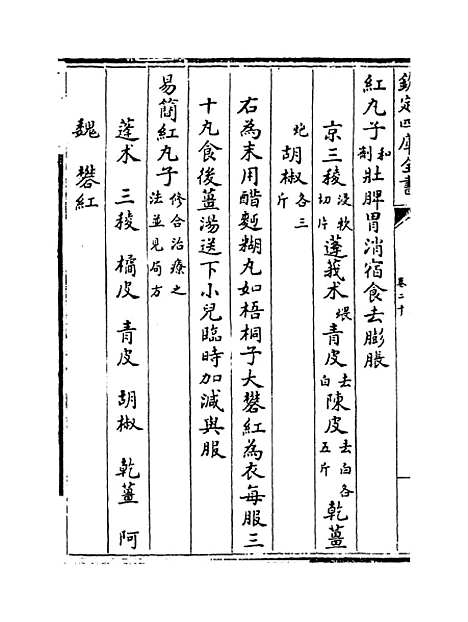 欽定四庫全書
卷二十
紅丸子和劑壯脾胃消宿食去膨脹
京三稜浸軟切片蓬莪术煨青皮去白陳皮去白各五斤乾薑
炮胡椒各三斤
右為末用醋麪糊丸如梧桐子大礬紅為衣每服三
十丸食後薑湯送下小兒臨時加減與服
易簡紅丸子修合治療之法並見局方
蓬术 三稜 橘皮 青皮 胡椒 乾薑 阿
魏 礬紅